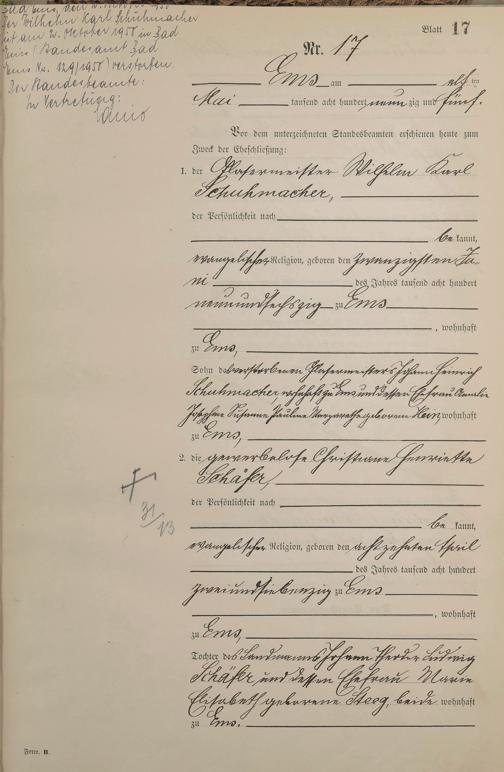 Bad Ems, den
Der Wilhelm Karl Schuhmacher
ist am 2. Oktober 1950 in Bad
Ems (Standesamt Bad
Ems No. 129/1950) verstorben.
Der Standesbeamte:
In Vertretung:
Blatt 17
Nr. 17
Ems am elf ten
Mai tausend acht hundert neun zig und fünf.
Vor dem unterzeichneten Standesbeamten erschienen heute zum
Zweck der Eheschließung:
1. der Glasermeister Wilhelm Karl
Schuhmacher,
der Persönlichkeit nach
be kannt,
evangelischer Religion, geboren den zwanzigsten Ju-
ni des Jahres tausend acht hundert
neunundsechszig zu Ems
, wohnhaft
zu Ems,
Sohn des verstorbenen Glasermeisters Johann Heinrich
Schuhmacher, wohnhaft zu Ems und dessen Ehefrau Amalie
Josephine Susanne Pauline Margarethe geborene Hein, wohnhaft
zu Ems,
2. die gewerbelose Christiane Henriette
Schäfer,
der Persönlichkeit nach
be kannt,
evangelischer Religion, geboren den achtzehnten April
des Jahres tausend acht hundert
zweiundsiebenzig zu Ems
, wohnhaft
zu Ems,
Tochter des Landmanns Johann Theodor Ludwig
Schäfer und dessen Ehefrau Marie
Elisabeth geborene Steeg, beide wohnhaft
zu Ems.
31/13
Form. B.